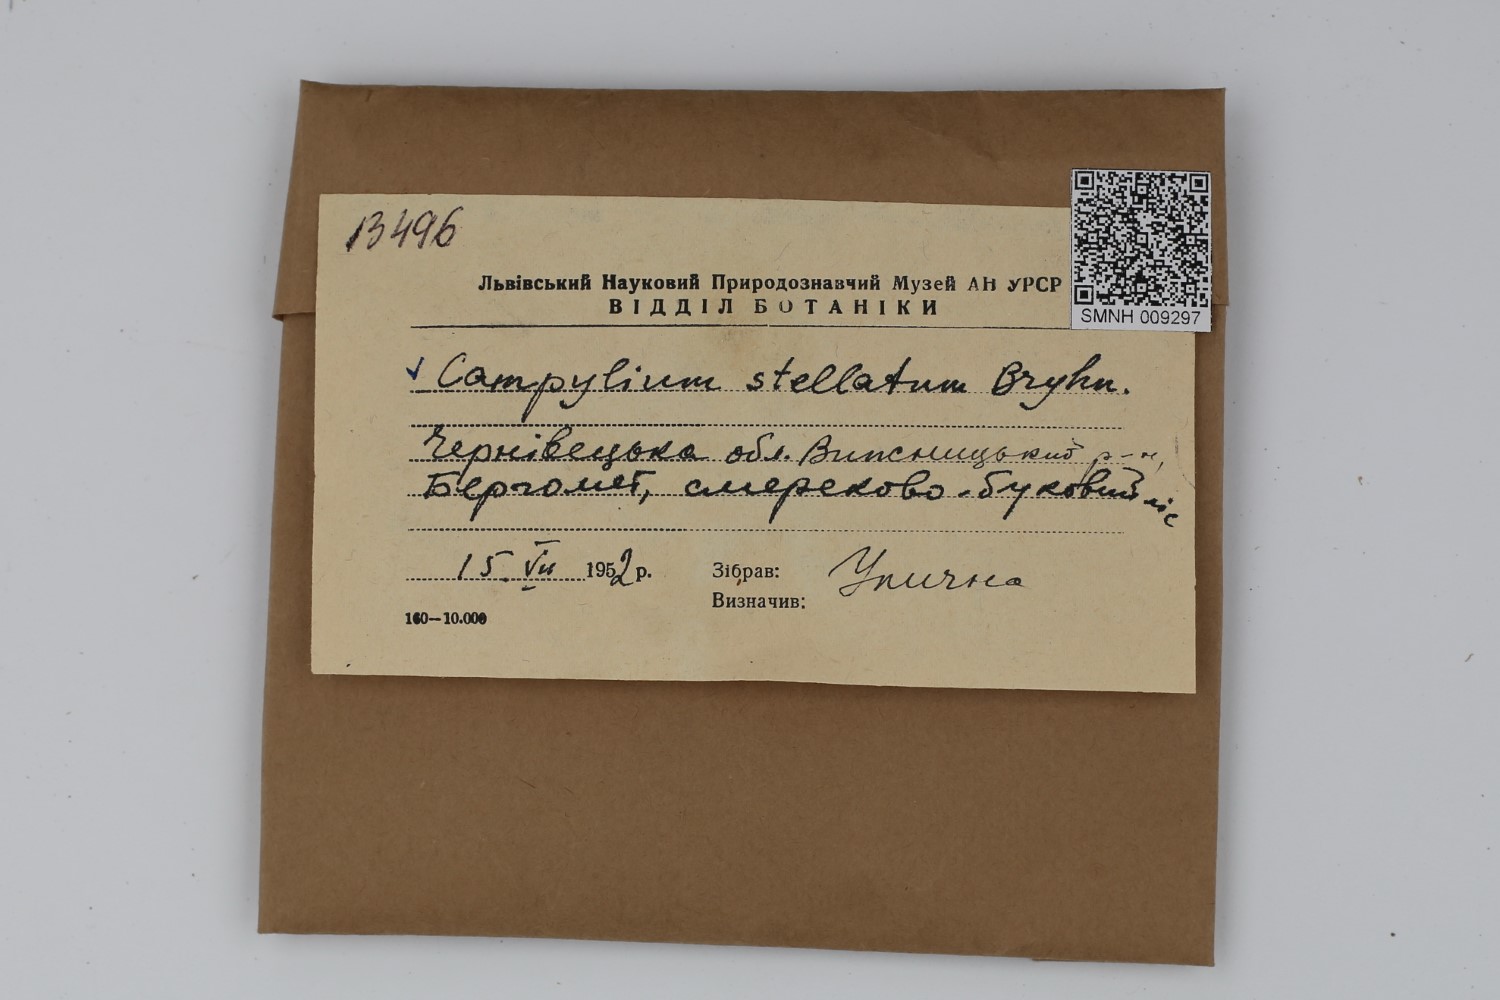 13496
Львівський Науковий Природознавчий Музей АН УРСР
ВІДДІЛ БОТАНІКИ
SMNH 009297
✓ Campylium stellatum Bryhn.
Чернівецька обл. Вижницький р-н,
Бергомет, смереково-буковий ліс
15.VII 1952 р. Зібрав: Улична
Визначив:
160—10.000